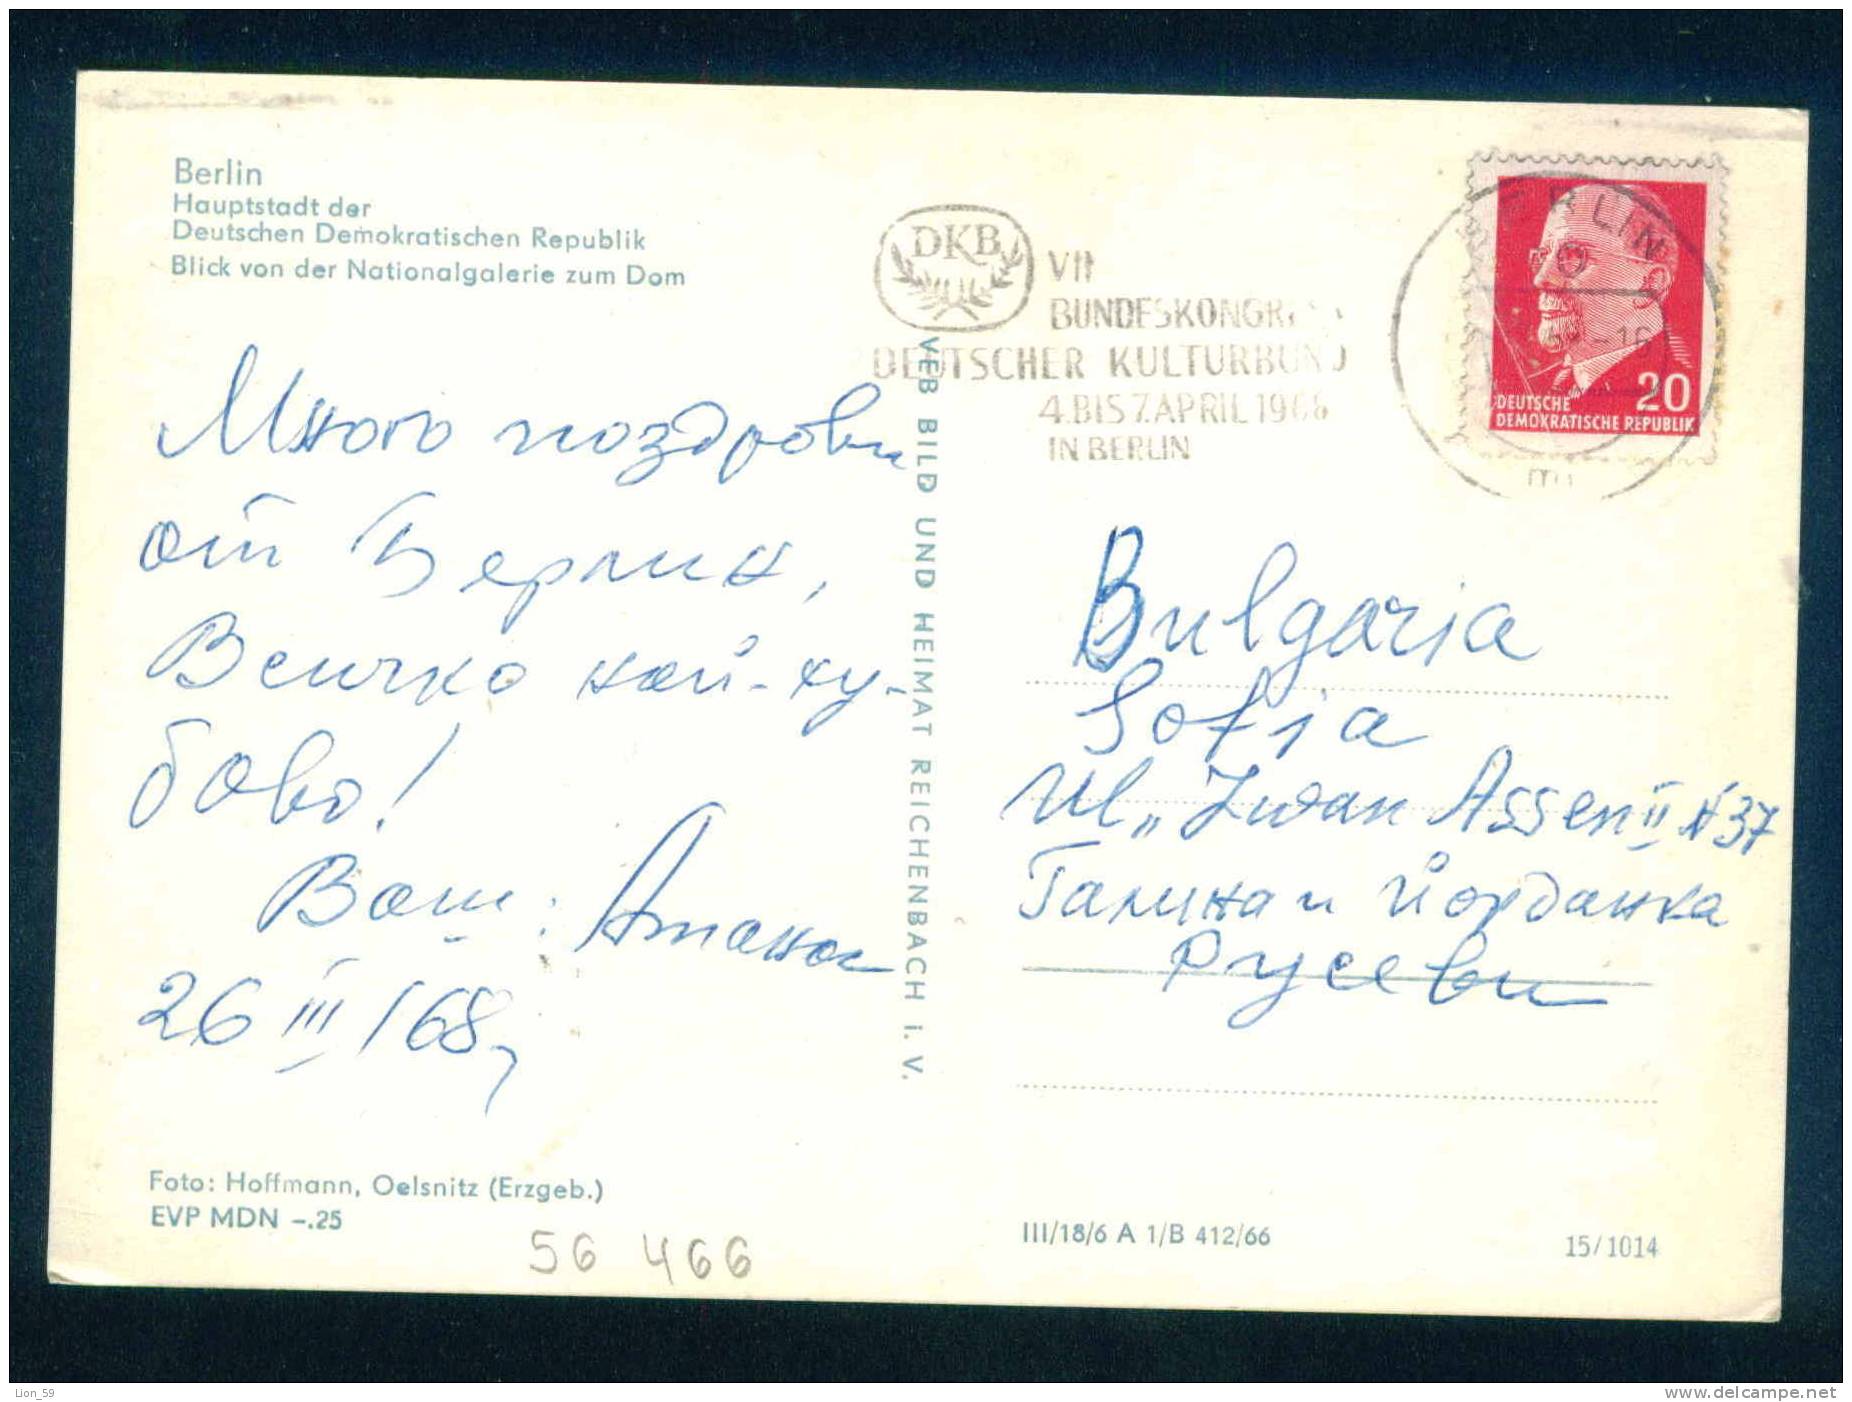 Berlin
Hauptstadt der
Deutschen Demokratischen Republik
Blick von der Nationalgalerie zum Dom
Много поздрави
от Берлин,
Всичко най-ху-
баво!
Ваш: Атанас
26 III/68г
Foto: Hoffmann, Oelsnitz (Erzgeb.)
EVP MDN -.25
56 466
VEB BILD UND HEIMAT REICHENBACH i. V.
DKB
VII
BUNDESKONGRESS
DEUTSCHER KULTURBUND
4.BIS 7.APRIL 1968
IN BERLIN
BERLIN
20
DEUTSCHE
DEMOKRATISCHE REPUBLIK
Bulgaria
Sofia
Ul „Iwan Assen II N37
Галина и Йорданка
Русеви
III/18/6 A 1/B 412/66
15/1014
Lion_59
www.delcampe.net